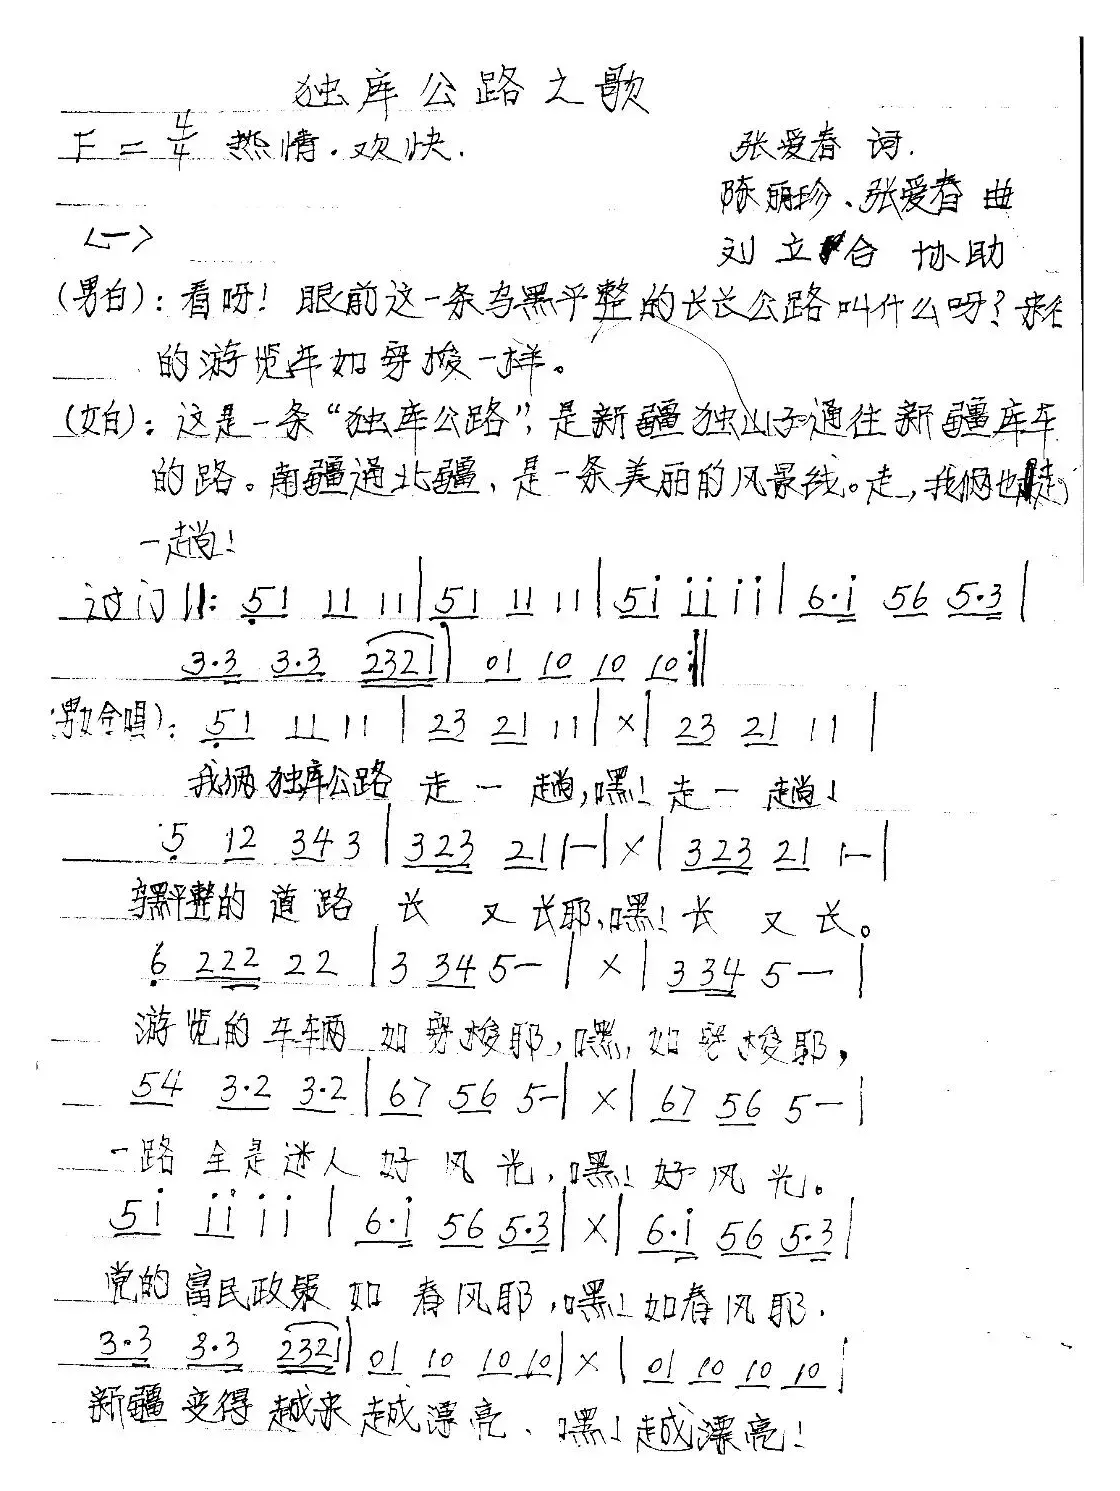 独库公路之歌
F = 4/4 热情.欢快.
张爱春 词.
陈丽珍、张爱春 曲
<一>
刘立合 协助
(男白): 看呀! 眼前这一条乌黑平整的长长公路叫什么呀? 来往
的游览车如穿梭一样。
(女白): 这是一条“独库公路”, 是新疆独山子通往新疆库车
的路。南疆通北疆, 是一条美丽的风景线。走, 我俩也走
一趟!
过门 ‖: 5̣1 11 11 | 5̣1 11 11 | 5i̇ i̇i̇ i̇i̇ | 6·i̇ 56 5·3 |
3·3 3·3 2321 | 01 10 10 10 :‖
(男女合唱): 5̣1 11 11 | 23 21 11 | × | 23 21 11 |
我俩独库公路 走 一 趟, 嘿! 走 一 趟!
5̣ 12 343 | 323 21 1— | × | 323 21 1— |
乌黑平整的 道 路 长 又 长耶, 嘿! 长 又 长。
6̣ 222 22 | 3 34 5— | × | 334 5— |
游览的 车辆 如 穿梭耶, 嘿, 如 穿梭耶,
54 3·2 3·2 | 67 56 5— | × | 67 56 5— |
一路 全是 迷人 好 风 光, 嘿! 好 风 光。
5i̇ i̇i̇ i̇i̇ | 6·i̇ 56 5·3 | × | 6·i̇ 56 5·3 |
党的 富民政策 如 春风耶, 嘿! 如春风耶.
3·3 3·3 2321 | 01 10 10 10 | × | 01 10 10 10 |
新疆 变得 越来 越漂亮、嘿! 越漂亮!